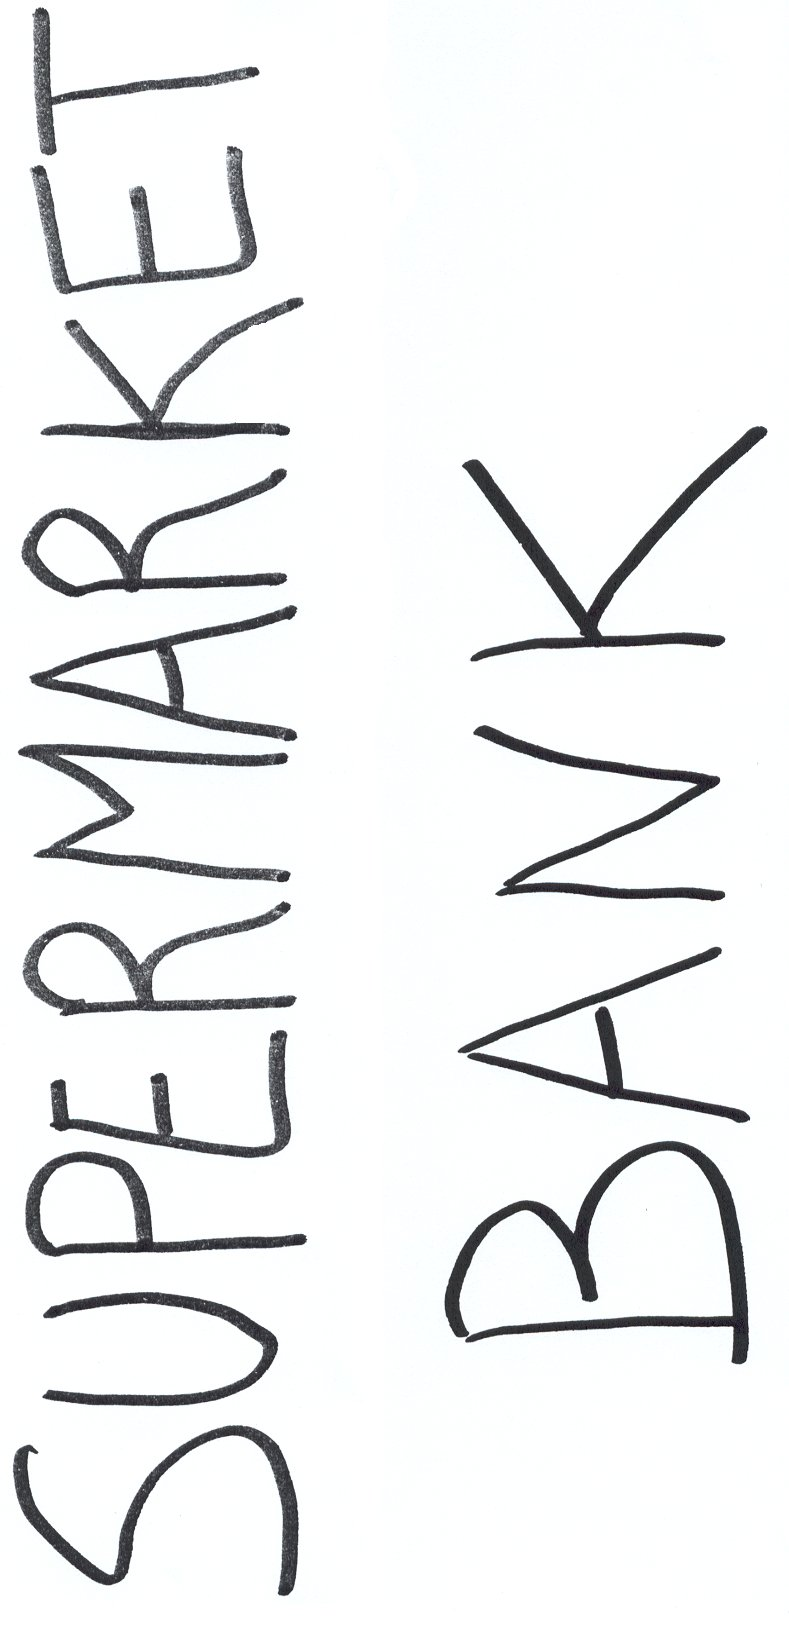 SUPERMARKET
BANK